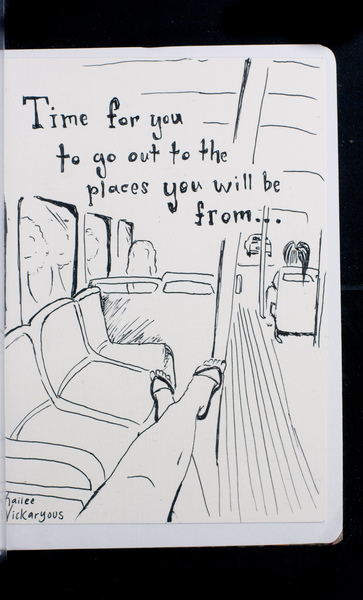 Time for you
to go out to the
places you will be
from...
Kailee
Vickaryous